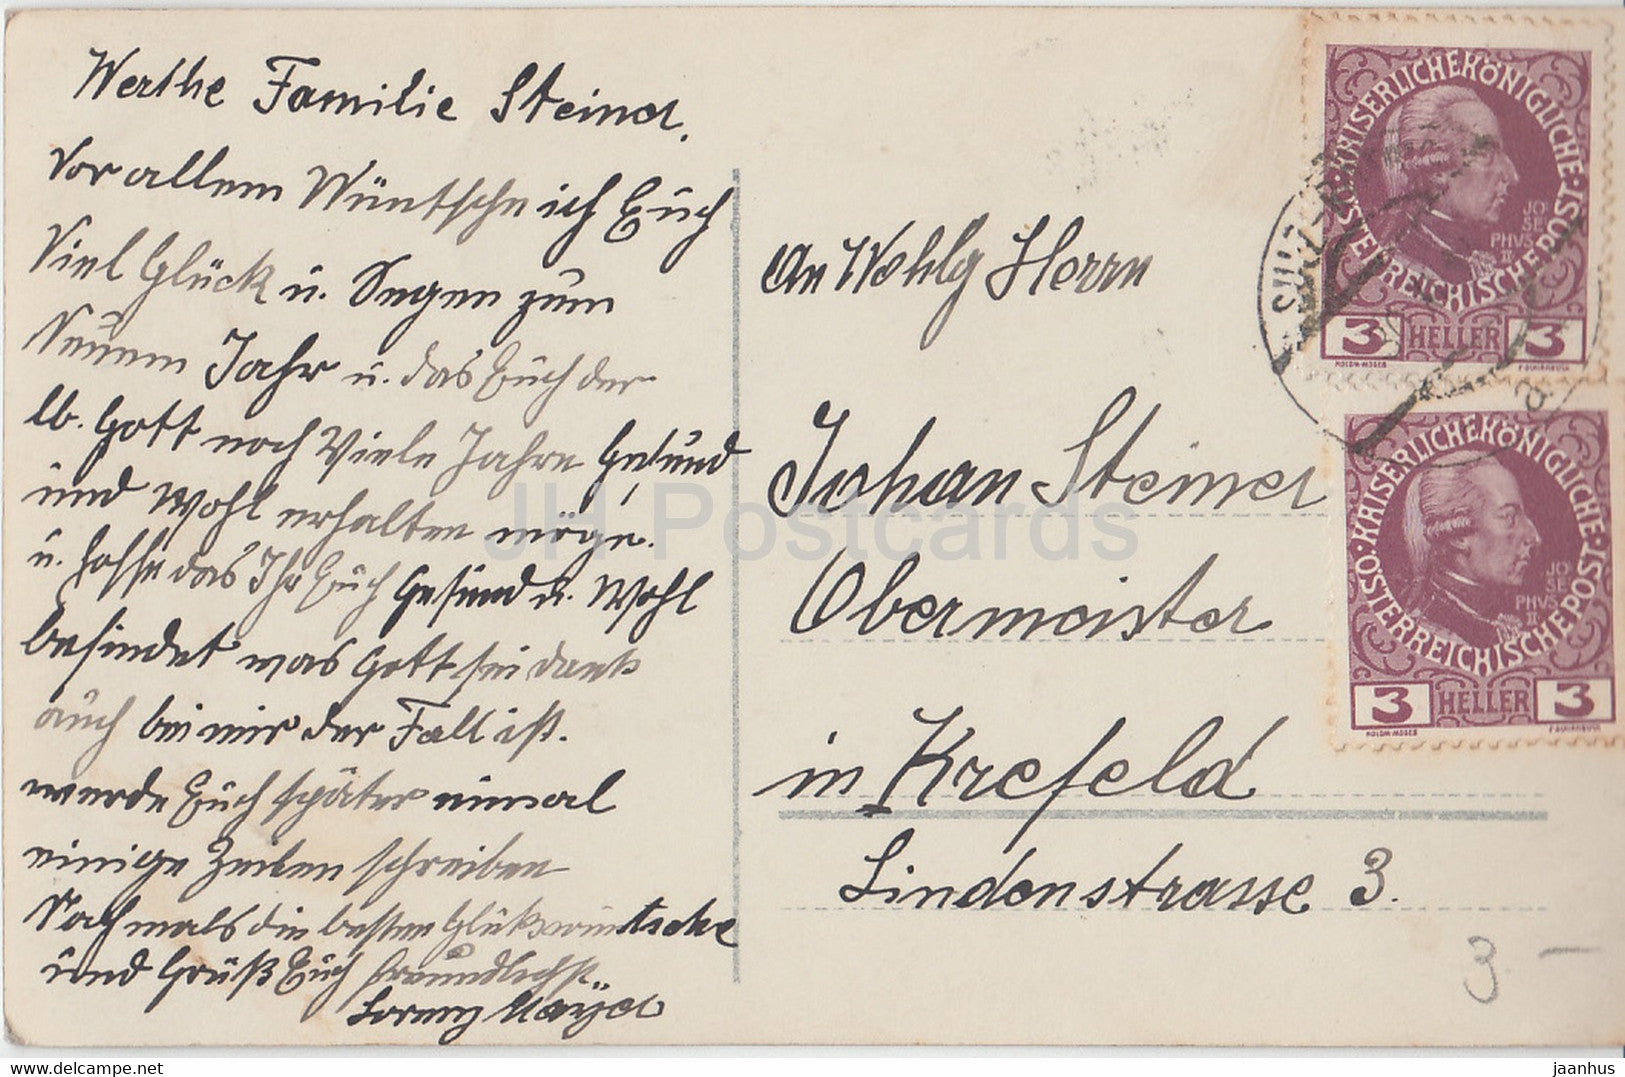 Werthe Familie Steiner,
Vor allem Wüntsche ich Euch
Viel Glück u. Segen zum
Neuem Jahr u. das Euch der
lb. Gott noch Viele Jahre Gesund
und Wohl erhalten möge.
u. hoffe das Ihr Euch Gesund u. Wohl
befindet was Gott sei dank
auch bei mir der Fall ist.
werde Euch später einmal
einige Zeilen schreiben
Nochmals die besten Glükwüntsche
und Grüß Euch freundlichst
Lorenz Mayer
An Wohlg Herrn
Johan Steiner
Obermeister
in Krefeld
Lindenstrasse 3.
3 –
KAISERLICHEKÖNIGLICHE
ÖSTERREICHISCHEPOST
JO
SE
PHVS
II
3 HELLER 3
KOLOM·MOSER
KAISERLICHEKÖNIGLICHE
ÖSTERREICHISCHEPOST
JO
SE
PHVS
II
3 HELLER 3
KOLOM·MOSER
SULZ-R
JH Postcards
www.delcampe.net
jaanhus